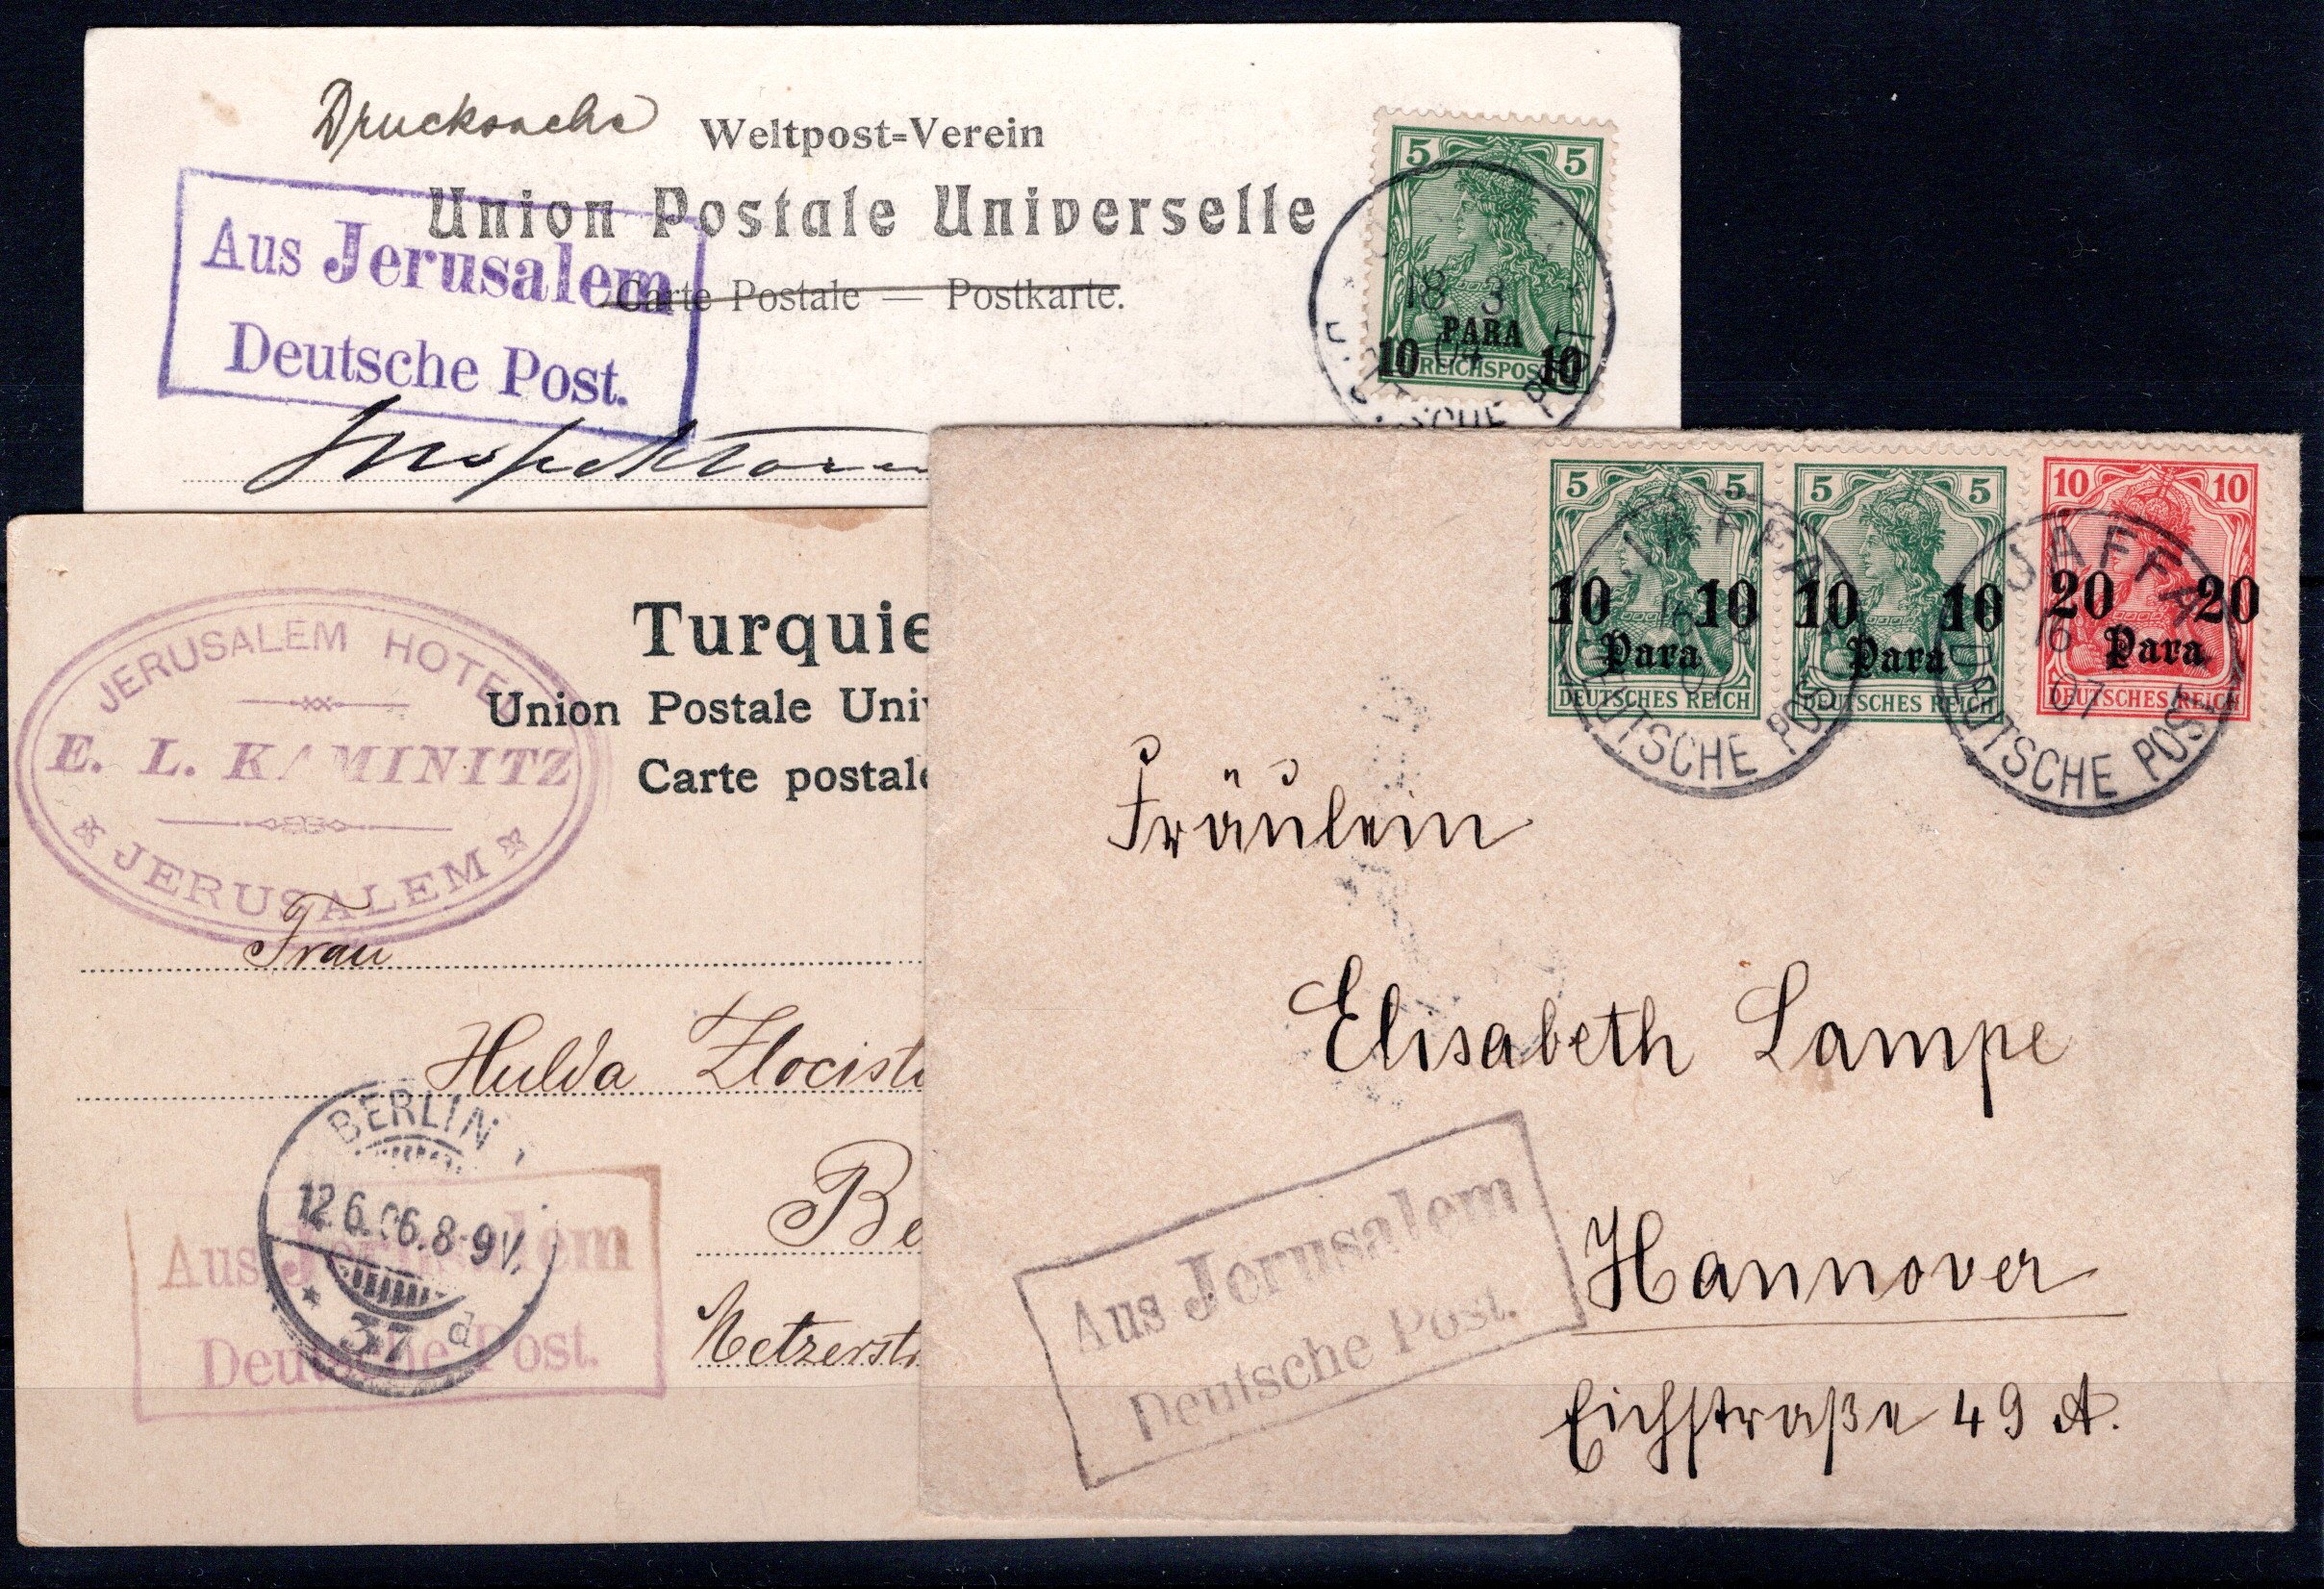 Drucksache
Weltpost-Verein
Union Postale Universelle
Carte Postale — Postkarte.
Aus Jerusalem
Deutsche Post.
5 5
18 3
PARA
10 10
REICHSPOST
DEUTSCHE POST
JERUSALEM HOTEL
E. L. KAMINITZ
JERUSALEM
Turquie
Union Postale Uni
Carte postale
Frau
Hulda Zlocist
Be
Metzerst
BERLIN
12.6.06.8-9V.
37 d
Aus Jerusalem
Deutsche Post.
5 5
10 10
Para
DEUTSCHES REICH
5 5
10 10
Para
DEUTSCHES REICH
10 10
20 20
Para
DEUTSCHES REICH
JAFFA
16
07
DEUTSCHE POST
JAFFA
16
07
DEUTSCHE POST
Fräulein
Elisabeth Lampe
Hannover
Eichstraße 49 A.
Aus Jerusalem
Deutsche Post.